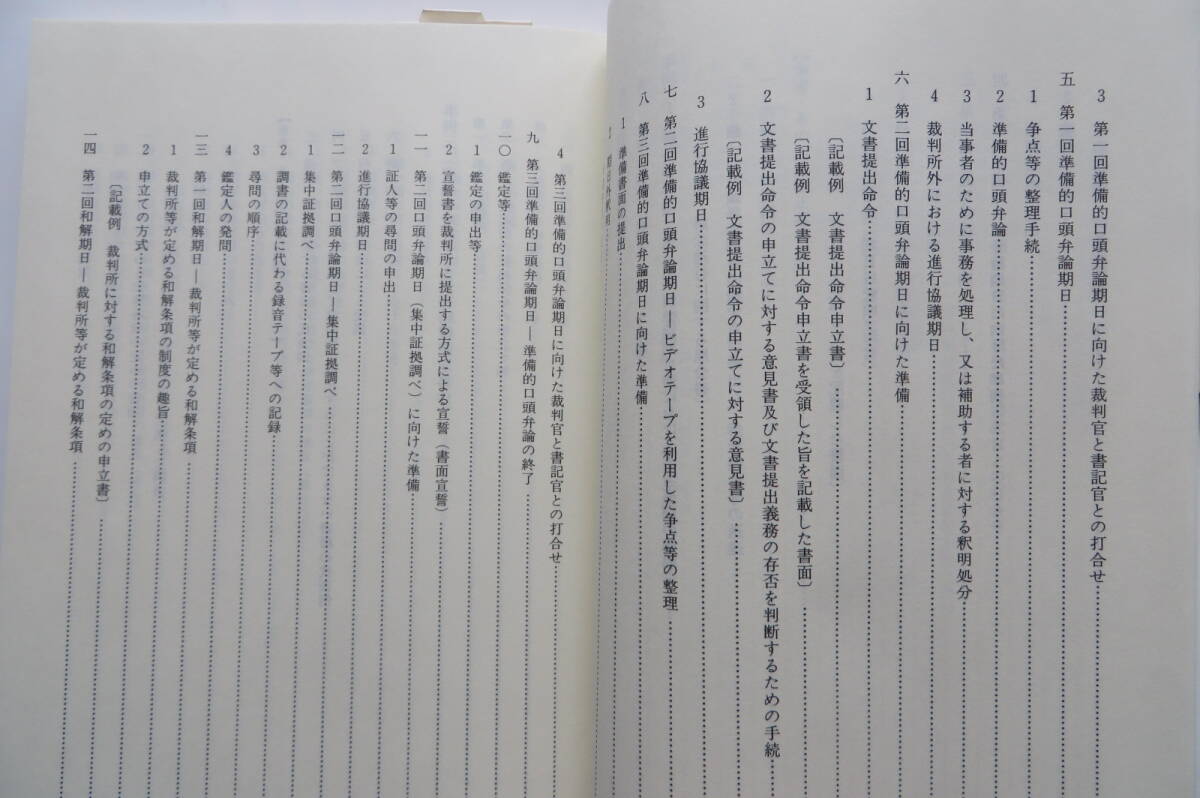 3 第一回準備的口頭弁論期日に向けた裁判官と書記官との打合せ
五 第一回準備的口頭弁論期日
1 争点等の整理手続
2 準備的口頭弁論
3 当事者のために事務を処理し、又は補助する者に対する釈明処分
4 裁判所外における進行協議期日
六 第二回準備的口頭弁論期日に向けた準備
1 文書提出命令
〔記載例 文書提出命令申立書〕
〔記載例 文書提出命令申立書を受領した旨を記載した書面〕
2 文書提出命令の申立てに対する意見書及び文書提出義務の存否を判断するための手続
〔記載例 文書提出命令の申立てに対する意見書〕
3 進行協議期日
七 第二回準備的口頭弁論期日―ビデオテープを利用した争点等の整理
八 第三回準備的口頭弁論期日に向けた準備
1 準備書面の提出
4 第三回準備的口頭弁論期日に向けた裁判官と書記官との打合せ
九 第三回準備的口頭弁論期日―準備的口頭弁論の終了
一〇 鑑定等
1 鑑定の申出等
2 宣誓書を裁判所に提出する方式による宣誓(書面宣誓)
一一 第二回口頭弁論期日(集中証拠調べ)に向けた準備
1 証人等の尋問の申出
2 進行協議期日
一二 第二回口頭弁論期日―集中証拠調べ
1 集中証拠調べ
2 調書の記載に代わる録音テープ等への記録
3 尋問の順序
4 鑑定人の発問
一三 第一回和解期日―裁判所等が定める和解条項
1 裁判所等が定める和解条項の制度の趣旨
2 申立ての方式
〔記載例 裁判所に対する和解条項の定めの申立書〕
一四 第二回和解期日―裁判所等が定める和解条項